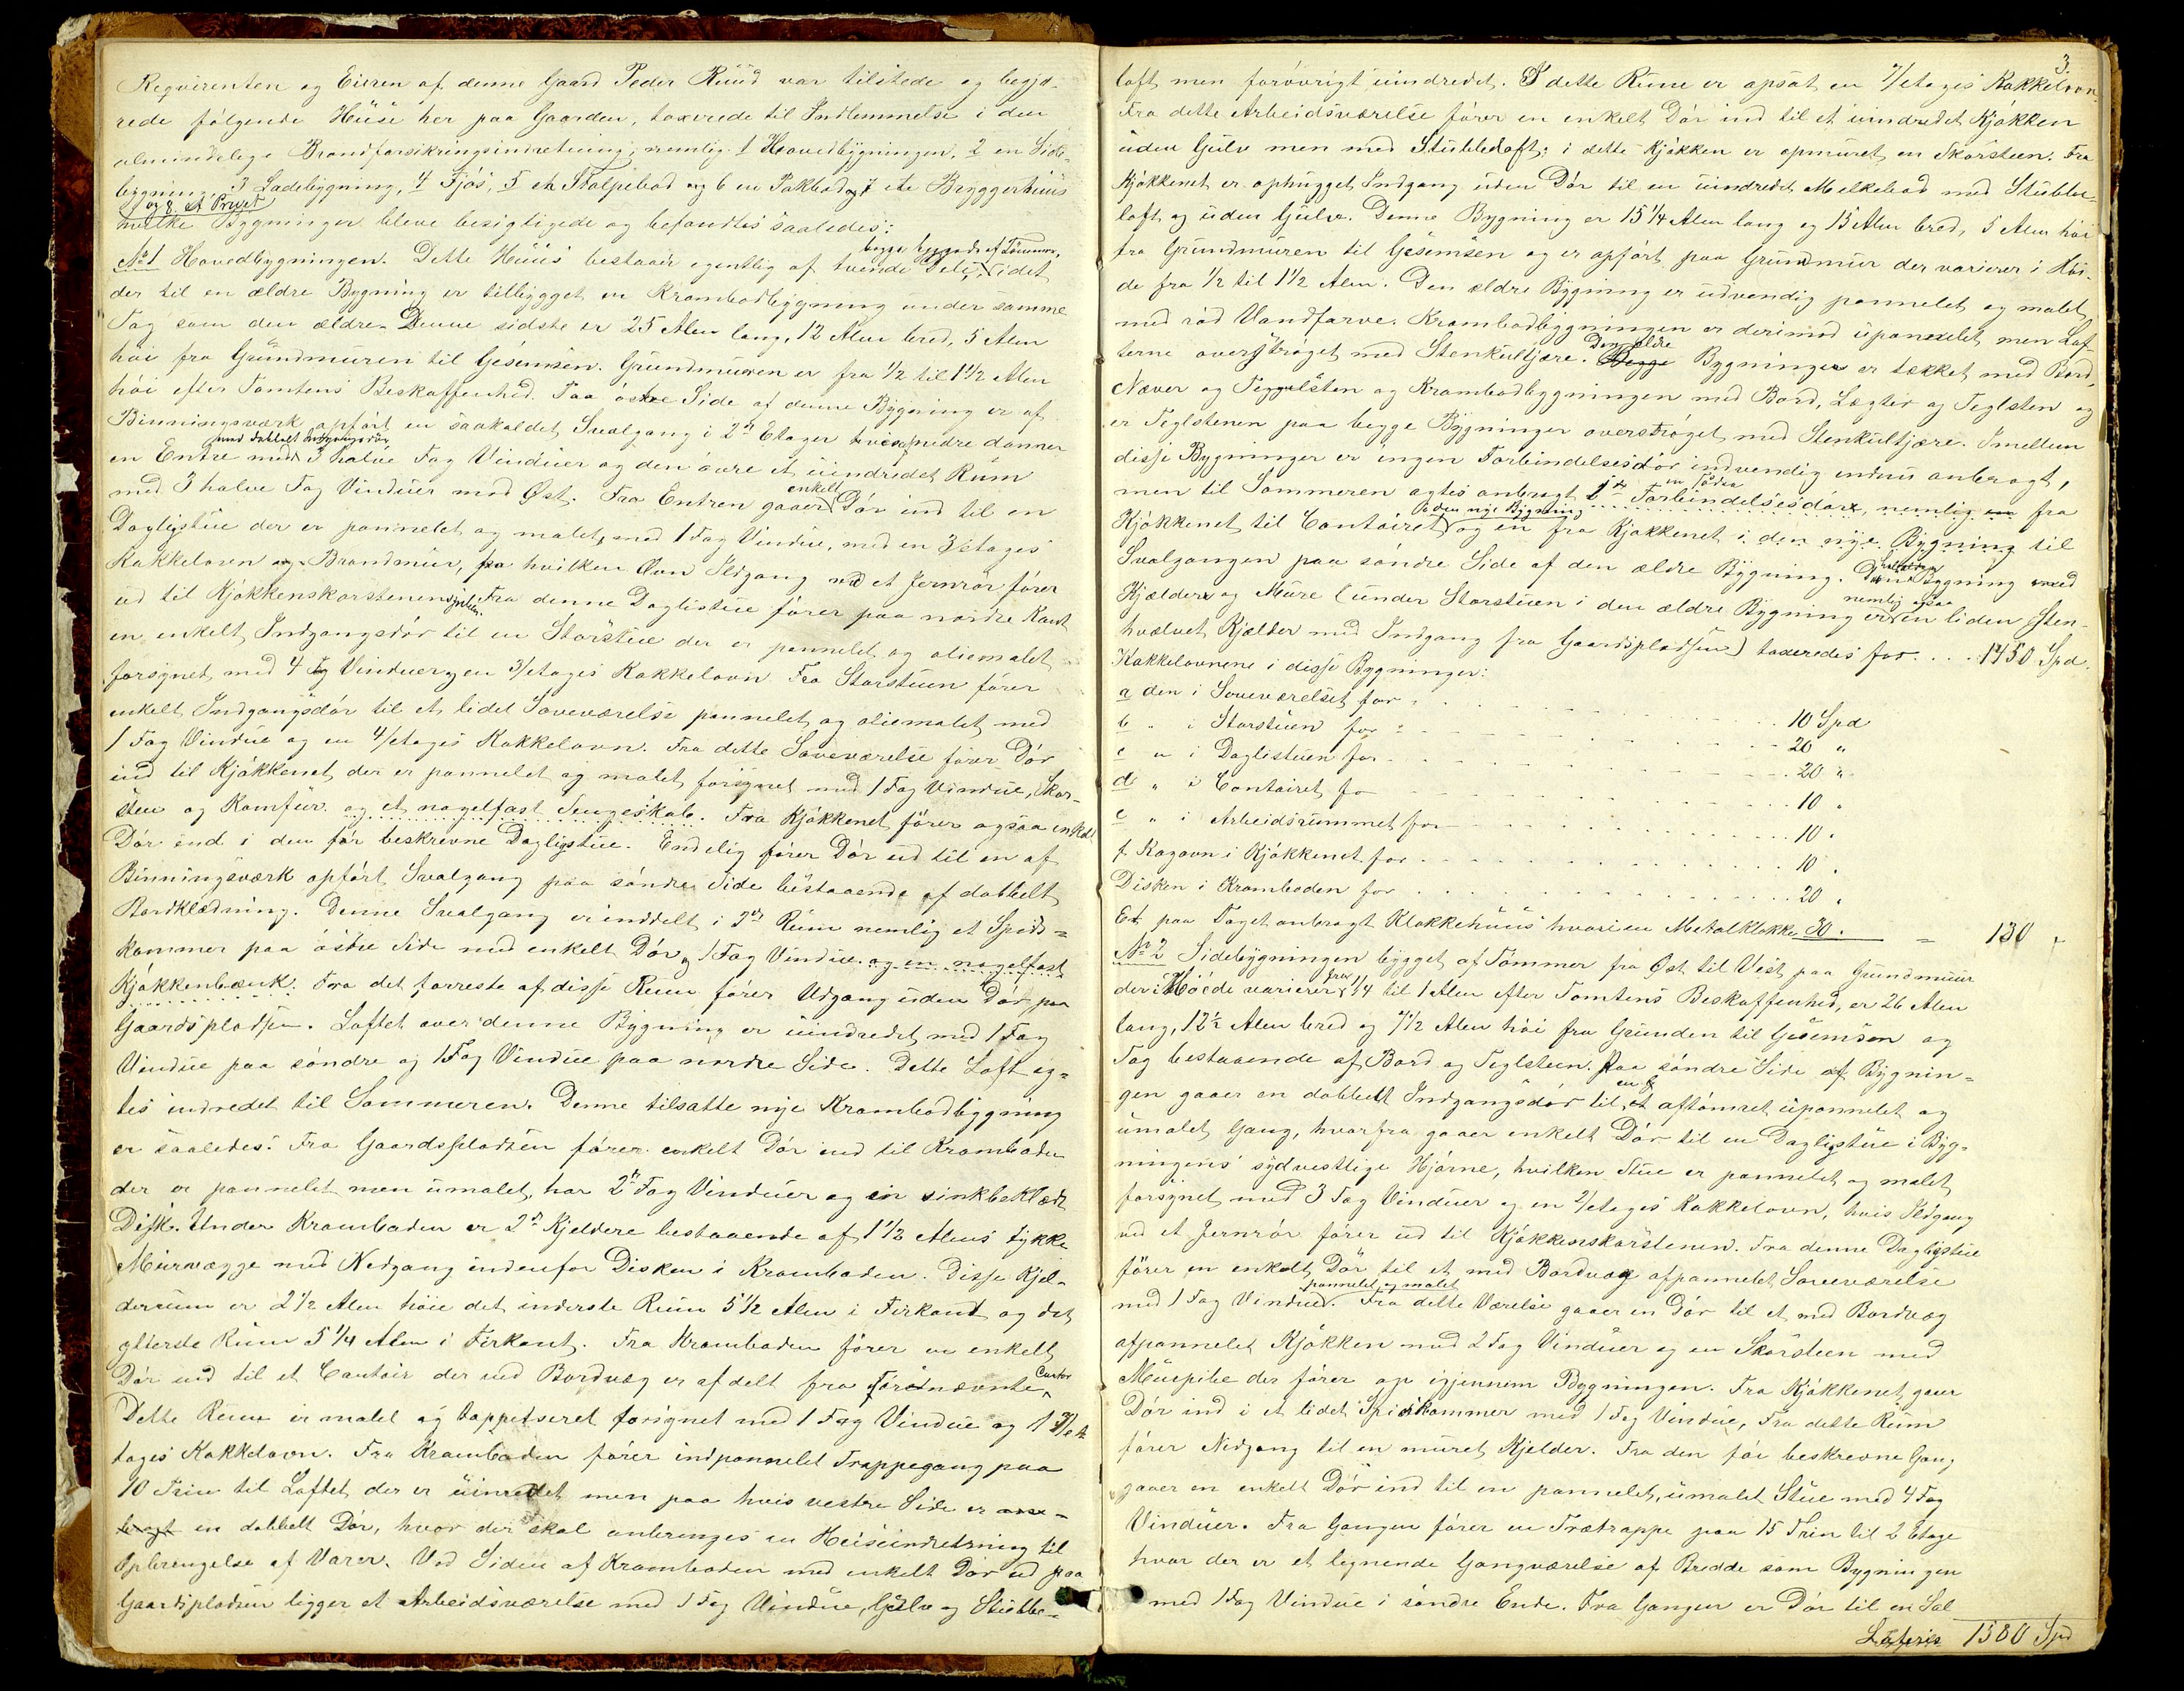 Reqvirenten og Eieren af denne Gaard Peder Ruud var tilstede og begjæ-
rede følgende Huse her paa Gaarden, taxerede til Indlemmelse i den
almindelige Brandforsikringsindretning, nemlig 1 Hovedbygningen, 2 en Side-
bygning, 3 Ladebygning, 4 Fjøs, 5 et Stolpebod og 6 en Pakbod og 7 et Bryggerhuus
og 8 et Privet
hvilke Bygninger bleve besigtigede og befandtes saaledes:
No 1 Hovedbygningen. Dette Huus bestaar egentlig af tvende Dele, begge byggede af Tømmer, idet
der til en ældre Bygning er tilbygget en Krambodbygning under samme
Tag som den ældre. Denne sidste er 25 Alen lang, 12 Alen bred, 5 Alen
høi fra Grundmuren til Gesemsen. Grundmuren er fra 1/2 til 1 1/2 Alen
høi efter Tomtens Beskaffenhed. Paa østre Side af denne Bygning er af
Binningsværk opført en saakaldet Svalgang i 2de Etager hvis nedre danner
en Entre med dobbelt Indgangsdør med 3 halve Fag Vinduer og den øvre et uindredet Rum
med 3 halve Fag Vinduer mod Øst. Fra Entren gaaer enkelt Dør ind til en
Dagligstue der er pannelet og malet, med 1 Fag Vindue, med en 3 etages
Kakkelovn og Brandmur, fra hvilken Ovn Ildgang ved et Jernrør fører
ud til Kjøkkenskorstenens piben. Fra denne Daglistue fører paa nordre Kant
en enkelt Indgangsdør til en Storstue der er pannelet og oliemalet
forsynet med 4 Fag Vinduer og en 3/etages Kakkelovn. Fra Storstuen fører
enkelt Indgangsdør til et lidet Soveværelse pannelet og oliemalet med
1 Fag Vindue og en 4/etages Kakkelovn. Fra dette Soveværelse fører Dør
ind til Kjøkkenet der er pannelet og malet forsynet med 1 Fag Vindue, Skor-
sten og Komfur og et nagelfast Sengeskab. Fra Kjøkkenet fører ogsaa enkelt
Dør ind i den før beskrevne Dagligstue. Endelig fører Dør ud til en af
Binningsværk opført Svalgang paa søndre Side bestaaende af dobbelt
Bordklædning. Denne Svalgang er inddelt i 2de Rum nemlig et Spids-
kammer paa østre Side med enkelt Dør og 1 Fag Vindue og en nagelfast
Kjøkkenbænk. Fra det forreste af disse Rum fører Udgang uden Dør paa
Gaardspladsen. Loftet over denne Bygning er uindredet med 1 Fag
Vindue paa søndre og 1 Fag Vindue paa nordre Side. Dette Loft ag-
tes indredet til Sommeren. Denne tilsatte nye Krambodbygning
er saaledes: Fra Gaardspladsen fører enkelt Dør ind til Kramboden
der er pannelet men umalet, har 2de Fag Vinduer og en sinkbeklædt
Disk. Under Kramboden er 2de Kjeldere bestaaende af 1 1/2 Alens tykke
Murvægge med Nedgang indenfor Disken i Kramboden. Disse Kjel-
derrum er 2 1/2 Alen høie det inderste Rum 5 1/2 Alen i Firkant og det
ytterste Rum 5 1/4 Alen i Firkant. Fra Kramboden fører en enkelt
Dør ind til et Contoir der ved Bordvæg er afdelt fra førstnævnte.
Dette Rum er malet og tappetseret forsynet med 1 Fag Vindue og 1 3/e-
tages Kakkelovn. Fra Kramboden fører indpannelet Trappegang paa
10 Trin til Loftet der er uindredet men paa hvis vestre Side er an-
bragt en dobbelt Dør, hvor der skal anbringes en Heiseindretning til
Opbringelse af Varer. Ved Siden af Kramboden med enkelt Dør ud paa
Gaardspladsen ligger et Arbeidsværelse med 1 Fag Vindue, Gulv og Stubbe-
3.
loft men forøvrigt uindredet. I dette Rum er opsat en 2/etages Kakkelovn.
Fra dette Arbeidsværelse fører en enkelt Dør ind til et uindredet Kjøkken
uden Gulv men med Stubbeloft; i dette Kjøkken er opmuret en Skorsteen. Fra
Kjøkkenet er ophugget Indgang uden Dør til en uindredet Melkebod med Stubbe-
loft og uden Gulv. Denne Bygning er 15 1/4 Alen lang og 15 Alen bred, 5 Alen høi
fra Grundmuren til Gesemsen og er opført paa Grundmur der varierer i Høi-
de fra 1/2 til 1 1/2 Alen. Den ældre Bygning er udvendig pannelet og malet
med rød Vandfarve. Krambodbygningen er derimod upannelet men Laf-
terne overstrøget med Stenkultjære. Den ældre Bygningen er tækket med Bord,
Næver og Teggelsten og Krambodbygningen med Bord, Lægter og Teglsten og
er Teglstenen paa begge Bygninger overstrøget med Stenkultjære. Imellem
disse Bygninger er ingen Forbindelsesdør indvendig endnu anbragt,
men til Sommeren agtes anbragt 2de Forbindelsesdøre, nemlig en fra
Kjøkkenet til Contoiret i den nye Bygning og en fra Kjøkkenet i den nye Bygning til
Svalgangen paa søndre Side af den ældre Bygning. Denne Bygning med
Kjældere og Mure (under Storstuen i den ældre Bygning er nemlig ogsaa en liden Sten-
hvælvet Kjælder med Indgang fra Gaardspladsen) taxeredes for . . . . 1450 Spd.
Kakkelovnene i disse Bygninger:
a den i Soveværelset for . . . 10 Spd
b " i Storstuen for . . . 20 "
c " i Daglistuen for . . . 20 "
d " i Contoiret for . . . 10 "
e " i Arbeidsrummet for . . . 10 "
f Kogovn i Kjøkkenet for . . . 10 "
Disken i Kramboden for . . . 20 "
Et paa Taget anbragt Klokkehuus hvori en Metalklokke 30. = 130 "
No 2 Sidebygningen bygget af Tømmer fra Øst til Vest paa Grundmuur
der i Høide varierer fra 1/4 til 1 Alen efter Tomtens Beskaffenhed, er 26 Alen
lang, 12 1/2 Alen bred og 7 1/2 Alen høi fra Grunden til Gesemsen og
Tag bestaaende af Bord og Teglsteen. Paa søndre Side af Bygnin-
gen gaaer en dobbelt Indgangsdør til en aftømret upannelet og
umalet Gang, hvorfra gaaer enkelt Dør til en Dagligstue i Byg-
ningens sydvestlige Hjørne, hvilken Stue er pannelet og malet
forsynet med 3 Fag Vinduer og en 2/etages Kakkelovn, hvis Ildgang
ved et Jernrør fører ud til Kjøkkenskorstenen. Fra denne Dagligstue
fører en enkelt Dør til et med Bordvæg afpannelet Soveværelse
med 1 Fag Vindue, pannelet og malet. Fra dette Værelse gaaer en Dør til et med Bordvæg
afpannelet Kjøkken med 2 Fag Vinduer og en Skorsteen med
Muurpibe der fører op igjennem Bygningen. Fra Kjøkkenet gaaer
Dør ind i et lidet Spiskammer med 1 Fag Vindue, Fra dette Rum
fører Nedgang til en muret Kjelder. Fra den før beskrevne Gang
gaaer en enkelt Dør ind til en pannelet, umalet Stue med 4 Fag
Vinduer. Fra Gangen fører en Trætrappe paa 15 Trin til 2 Etage
hvor der er et lignende Gangværelse af Bredde som Bygningen
med 1 Fag Vindue i søndre Ende. Fra Gangen er Dør til en Sal
Lateris 1580 Spd